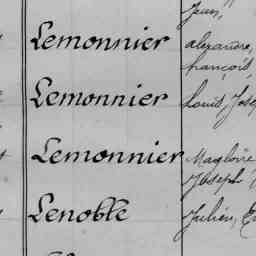 Jean,
Lemonnier alexandre,
françois,
Lemonnier Louis, Jose
Lemonnier Magloire
Joseph
Lenoble Julien,